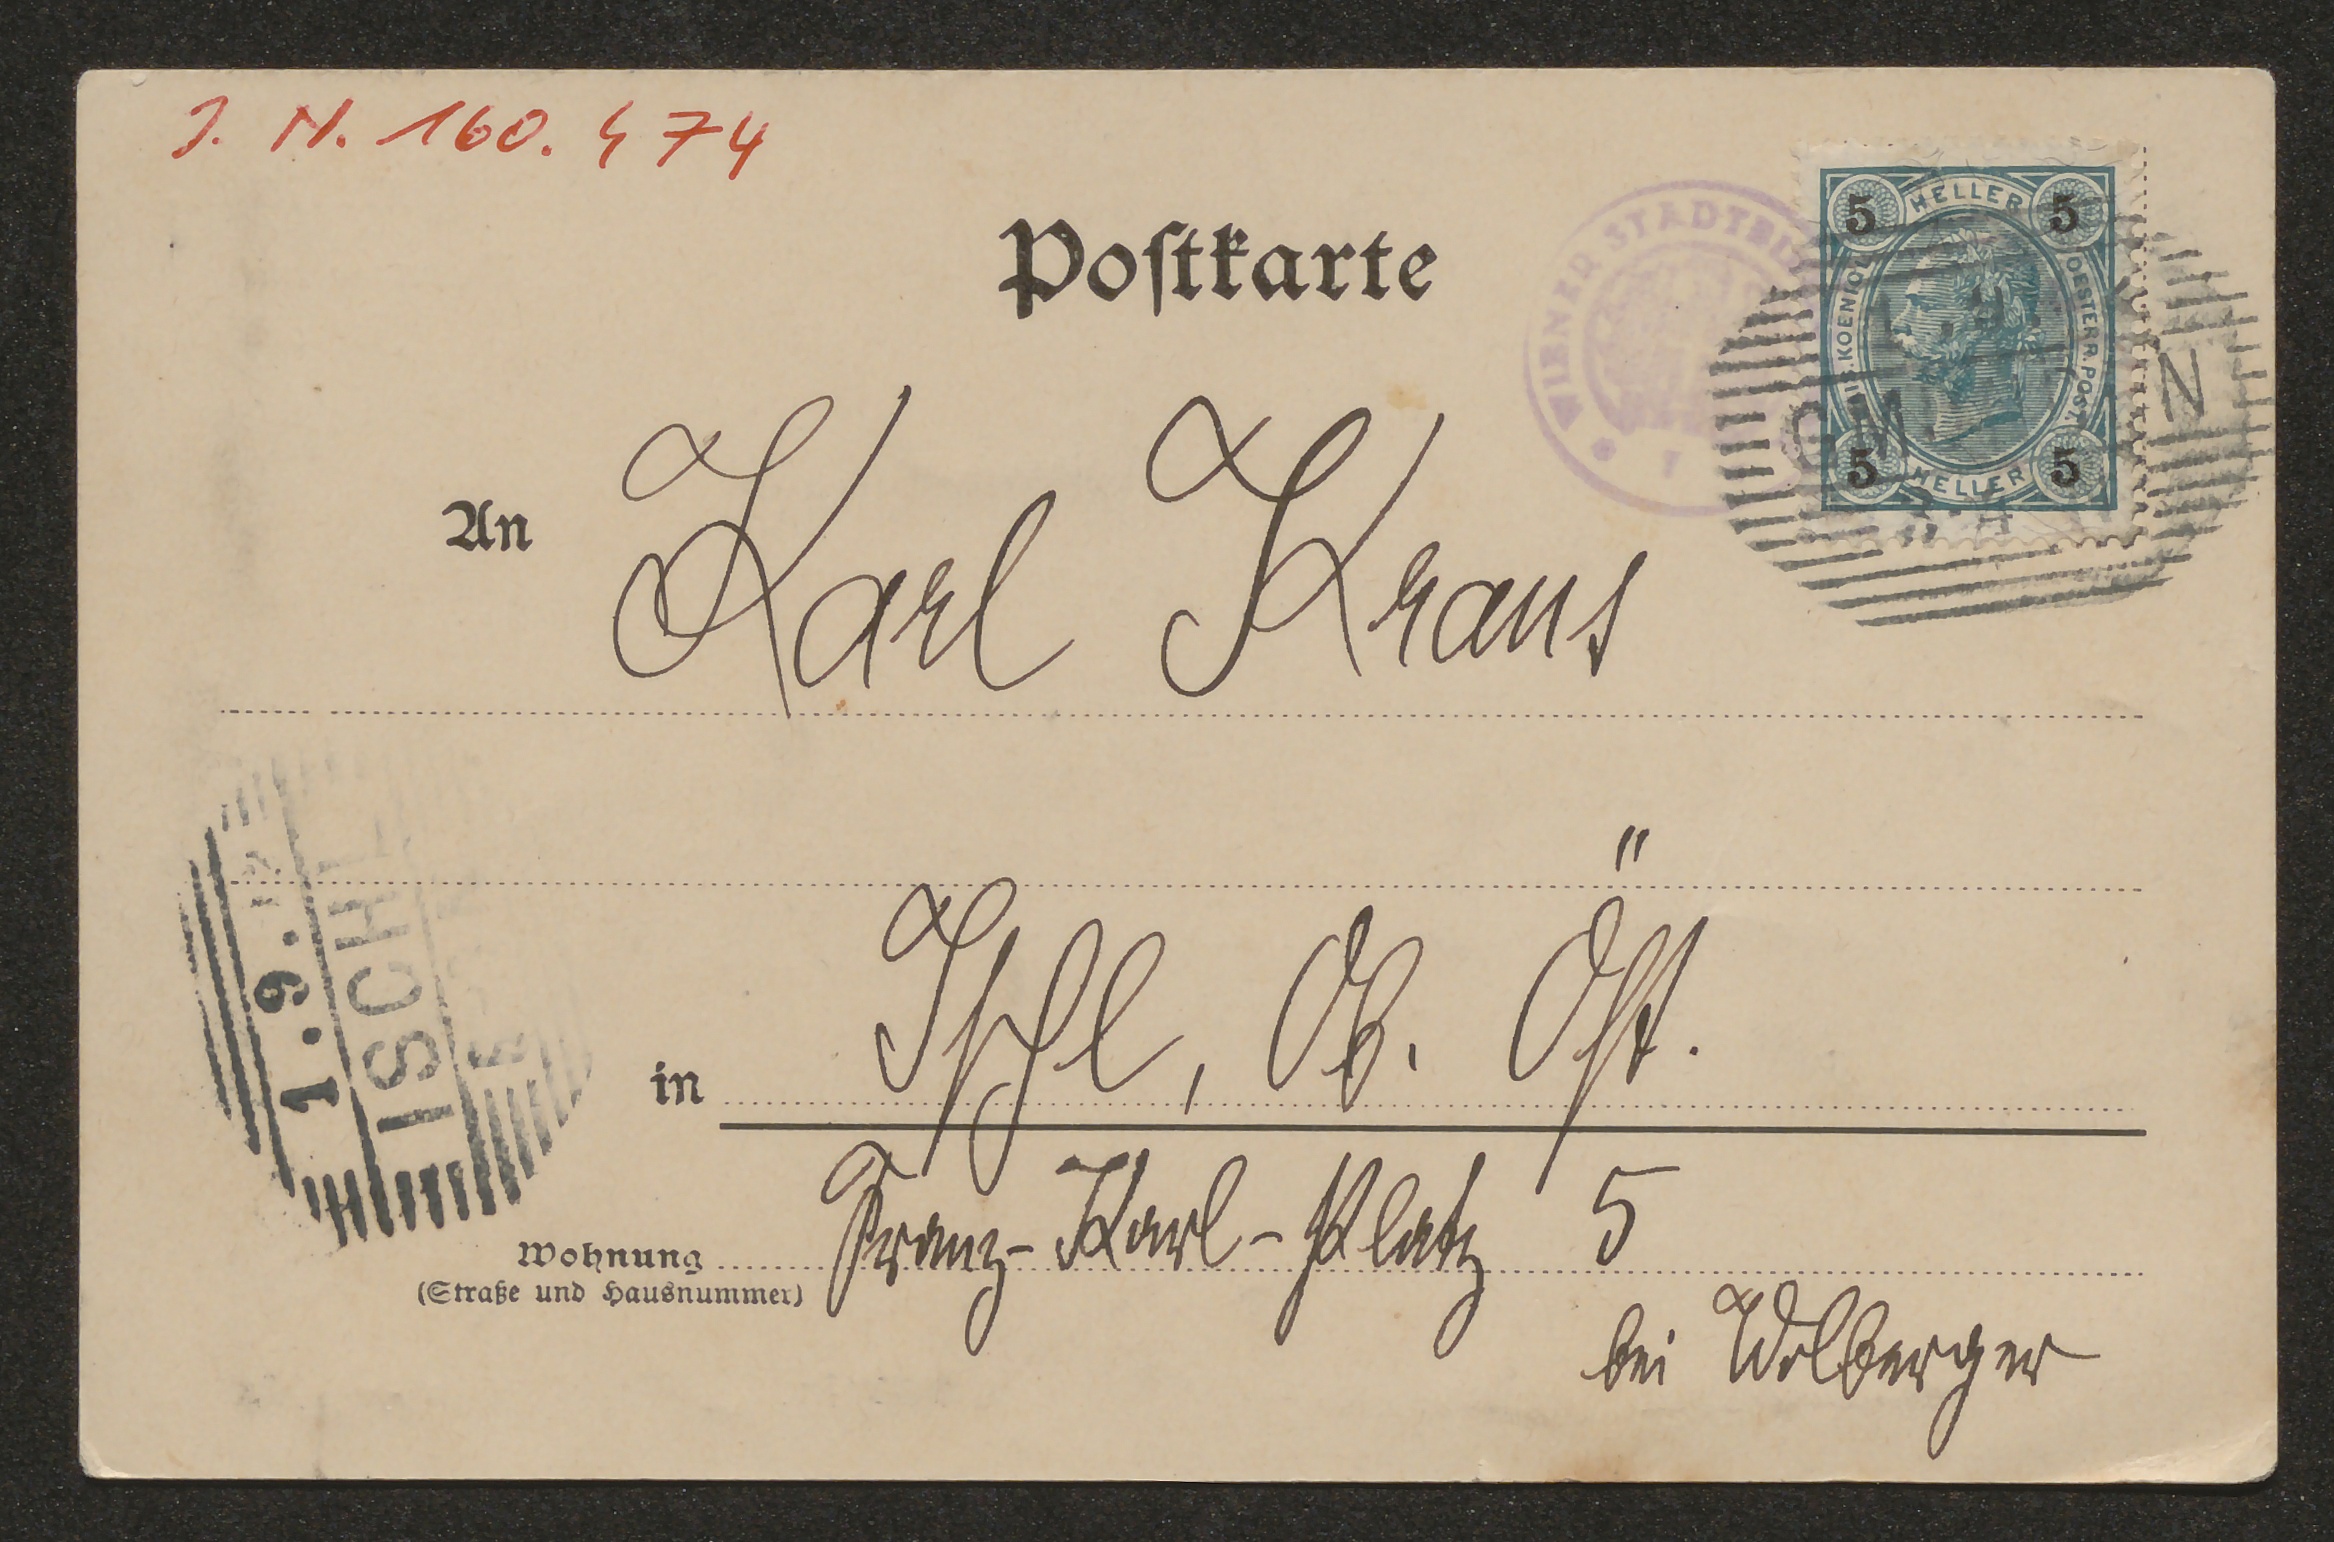 J. N. 160.474
Postkarte
WIENER STADTBI
5 HELLER 5
KOENIGL. OESTERR. POST.
5 HELLER 5
An Karl Kraus
1.9.
ISCHL
in Ischl, Ob. Öst.
Wohnung Franz-Karl-Platz 5
(Straße und Hausnummer)
bei Wolberger